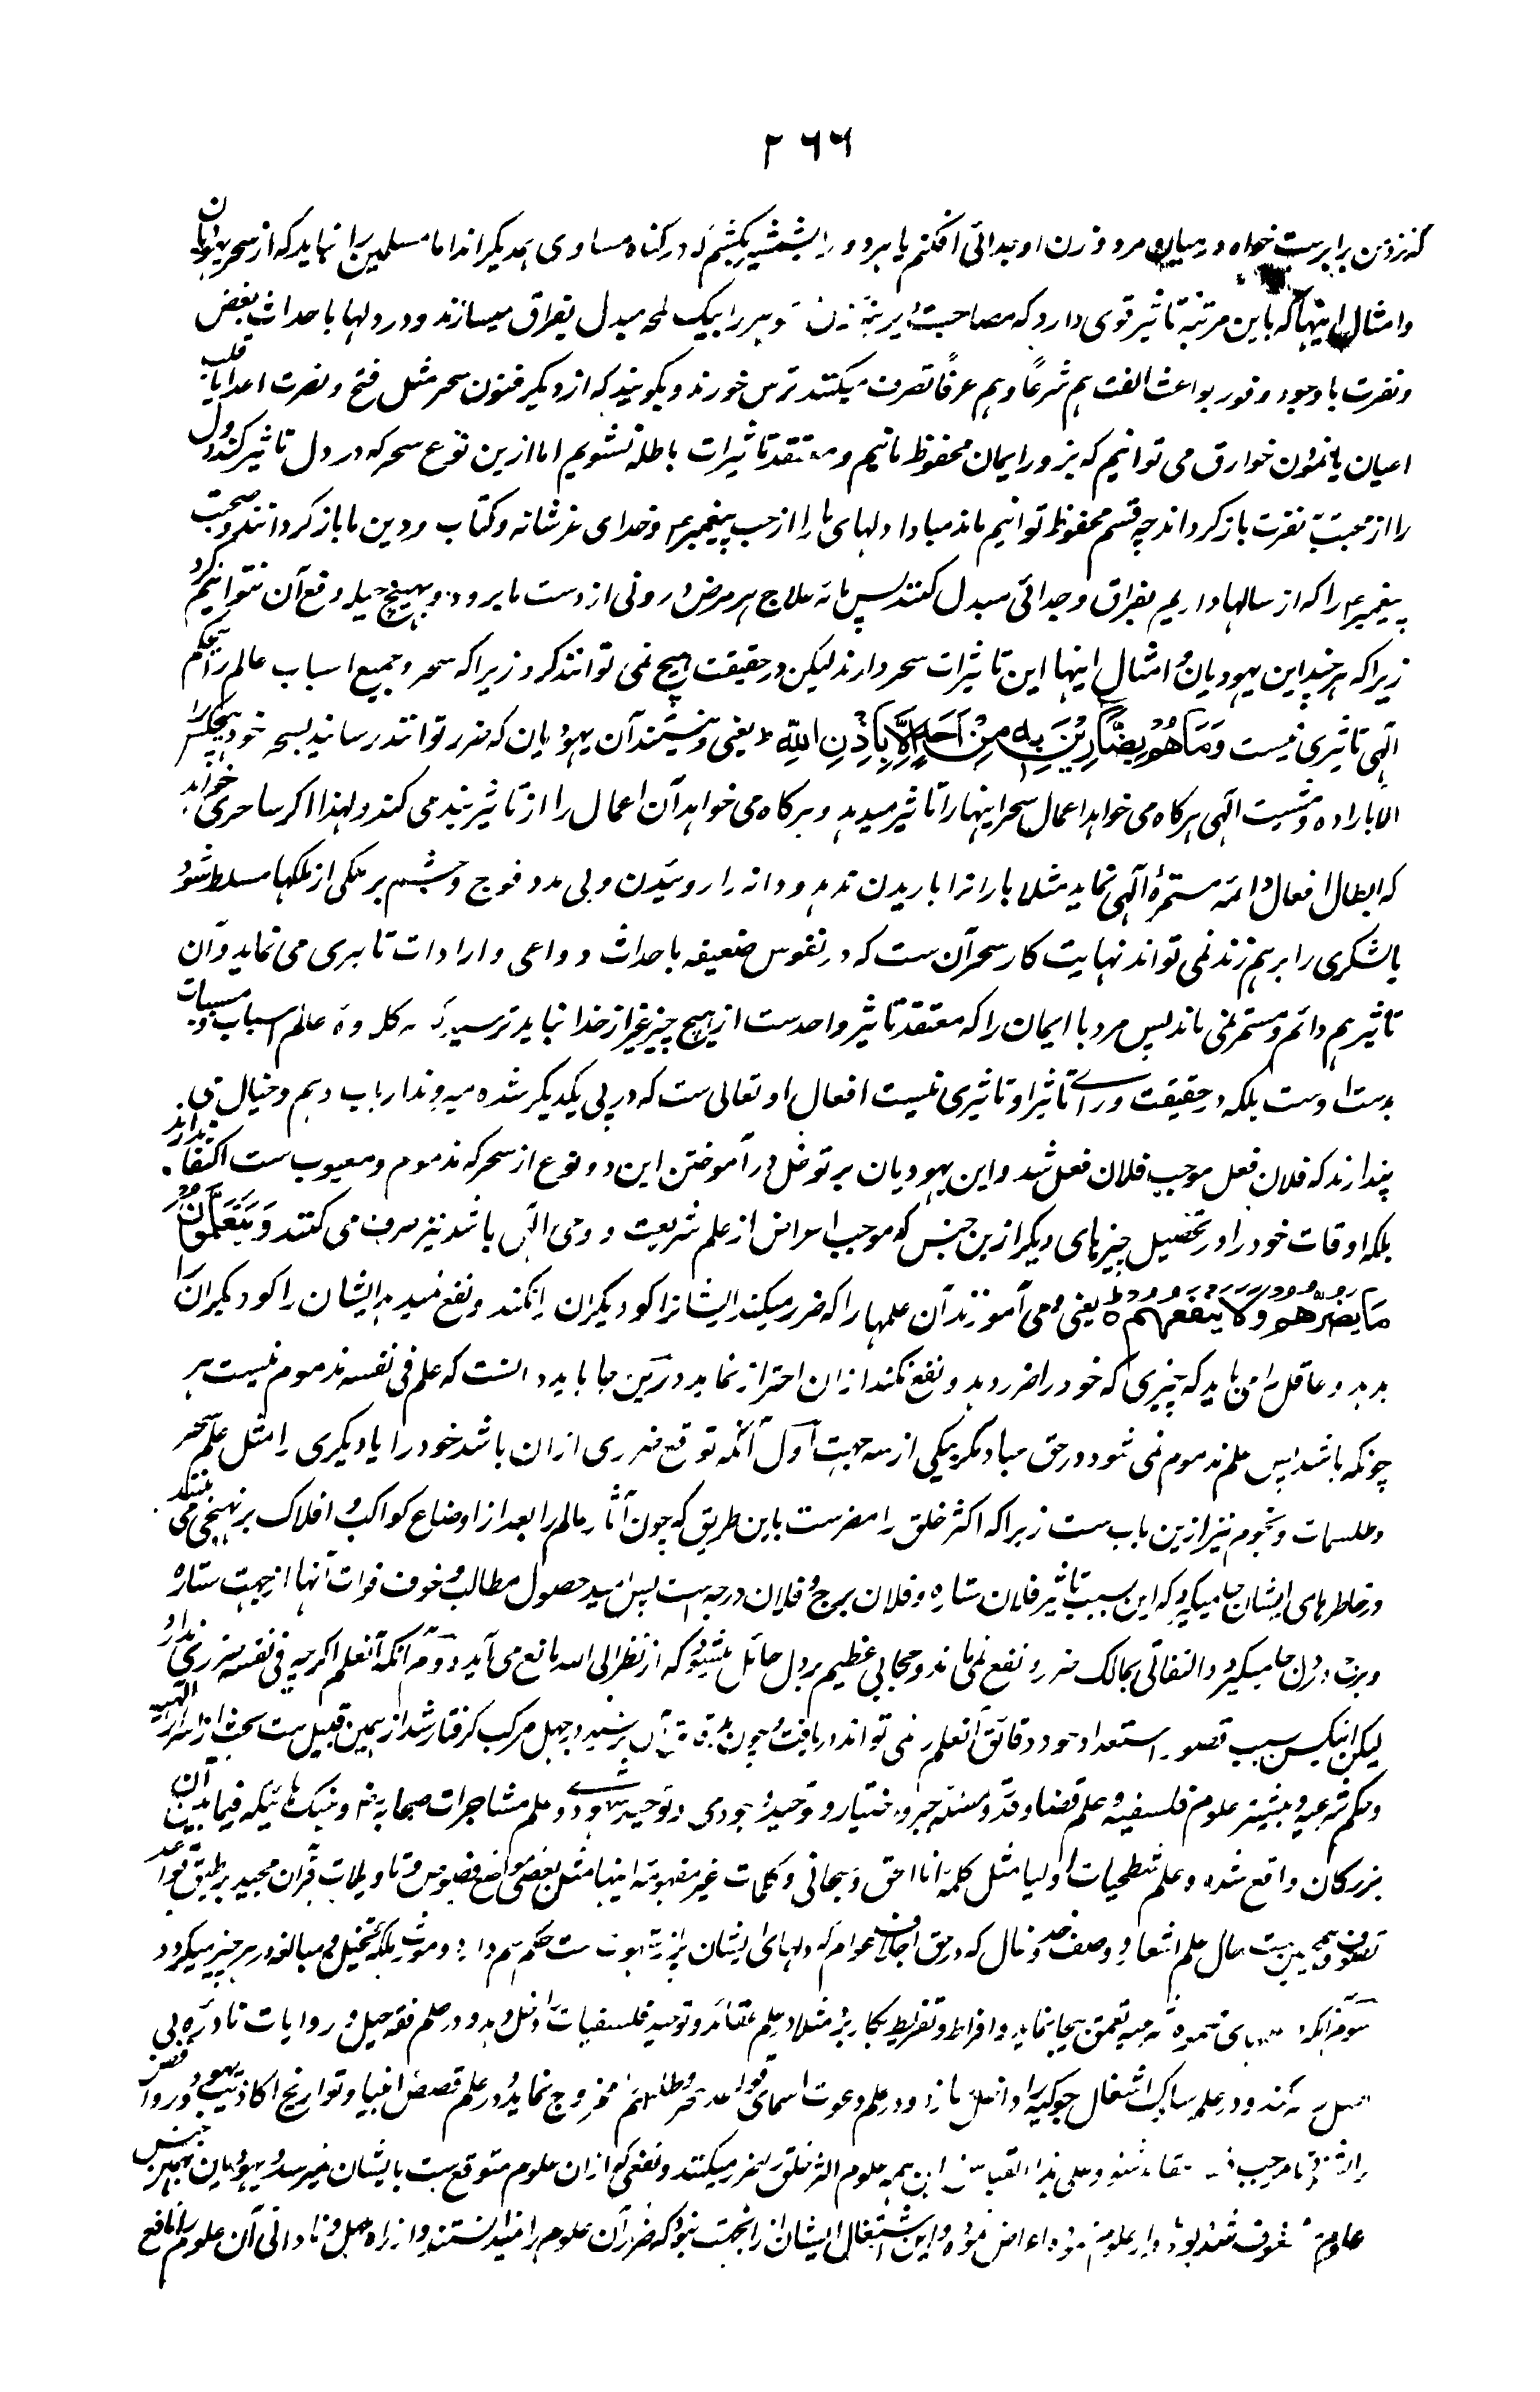 ۲۶۶
که نزد من برابرست خواه در میان مرد و زن او جدائی افکنم یا هر دو را بشمشیر بکشم که در گناه مساوی همدیگراند اما مسلمین را نباید که از سحر یهودیان
و امثال اینها که باین مرتبه تاثیر قوی دارد که مصاحبت زن و را بیک لمحه مبدل بفراق میسازند و در دلها باحداث بغض
و نفرت با وجود وفور بواعث الفت هم شرعاً و هم عرفاً تصرف میکنند ترس خورند و بگویند که از دیگر فنون سحر مثل فتح و نصرت اعدا یا قلب
اعیان یا نمودن خوارق می توانیم که بزور ایمان محفوظ مانیم و معتقد تاثیرات باطله نشویم اما ازین نوع سحر که در دل تاثیر کند و دل
را از محبت بنفرت باز گرداند چه قسم محفوظ توانیم ماند مبادا دلهای ما را از حب پیغمبر و خدای عز شانه و کتاب و دین ما باز گردانند و صحبت
پیغمبر را که از سالها داریم بفراق و جدائی مبدل کنند پس ما که علاج هر مرض روئی از دست ما برود و بهیچ حیله دفع آن نتوانیم کرد
زیرا که هر چند این یهودیان و امثال اینها این تاثیرات سحر دارند لیکن در حقیقت هیچ نمی توانند کرد زیرا که سحر و جمیع اسباب عالم را بیحکم
الهی تاثیری نیست وَمَا هُمْ بِضَارِّينَ بِهِ مِنْ أَحَدٍ إِلَّا بِإِذْنِ اللَّهِ ط یعنی و نیستند آن یهودیان که ضرر توانند رسانید بسحر خود هیچکس را
الا باراده و مشیت الهی هرگاه می خواهد اعمال سحر اینها را تاثیر میدهد و هرگاه می خواهد آن اعمال را از تاثیر بند می کند و لهذا اگر ساحری خواهد
که ابطال افعال دائمه مستمرهٔ الهی نماید مثلا باران را باریدن ندهد و دانه را روئیدن و بی مدد فوج و حشم بر ملکی از ملکها مسلط شود
یا لشکری را برهم زند نمی تواند نهایت کار سحر آن ست که در نفوس ضعیفه باحداث دواعی و ارادات تاثیری می نماید و آن
تاثیر هم دائم و مستمر نمی ماند پس مرد با ایمان را که معتقد تاثیر واحدست از هیچ چیز غیر از خدا نباید ترسید که عالم اسباب و مسببات
بدست اوست بلکه در حقیقت ورای تاثیر او تاثیری نیست افعال او تعالی ست که در پی یکدیگر شده میروند ارباب وهم و خیال می
پندارند که فلان فعل موجب فلان فعل شد و این یهودیان بر توغل در آموختن این دو نوع از سحر که مذموم و معیوب ست اکتفا ندارند
بلکه اوقات خود را در تحصیل چیزهای دیگر ازین جنس که موجب اعراض از علم شریعت و وحی الهی باشد نیز صرف می کنند وَيَتَعَلَّمُونَ
مَا يَضُرُّهُمْ وَلَا يَنْفَعُهُمْ ط یعنی و می آموزند آن علمها را که ضرر میکند ایشانرا گو دیگران را نکند و نفع نمیدهد ایشان را گو دیگران را
بدهد و عاقل را می باید که چیزی که خود را ضرر دهد و نفع نکند ازان احتراز نماید درین جا باید دانست که علم فی نفسه مذموم نیست هر
چونکه باشد پس علم مذموم نمی شود در حق عباد مگر بیکی از سه جهت اول آنکه توقع ضرری ازان باشد خود را یا دیگری را مثل علم سحر
و طلسمات و نجوم نیز ازین باب ست زیرا که اکثر خلق را مضرست باین طریق که چون آثار عالم را بعد از اوضاع کواکب و افلاک بر نهجی می بینند
در خاطرهای ایشان جا میگیرد که این بسبب تاثیر فلان ستاره و فلان برج و فلان درجه است پس امید حصول مطالب و خوف فوات آنها از جهت ستاره
و برج در دل جا میگیرد و التفاتی بمالک ضرر و نفع نمی ماند و حجابی عظیم بر دل حائل میشود که از نظر الی الله مانع می آید دوم آنکه آنعلم اگرچه فی نفسه ضرری ندارد
لیکن اینکس بسبب قصور استعداد خود دقائق آنعلم را نمی تواند دریافت و چون بدقائق آن نرسید در جهل مرکب گرفتار شد از همین قبیل ست بحث از اسرار الهیه
و حکم شرعیه و بیشتر علوم فلسفیه و علم قضا و قدر و مسئله جبر و اختیار و توحید وجودی و توحید شهودی و علم مشاجرات صحابه و جنگ هائیکه فیما بین آن
بزرگان واقع شده و علم شطحیات اولیا مثل کلمه انا الحق و سبحانی و کلمات غیر مفهومه اینها مثل بعضی مواضع فصوص و تاویلات قرآن مجید بر طبق قواعد
تصوف و همچنین ست حال علم اشعار و وصف خد و خال که در حق عوام که دلهای ایشان پر از شهوت ست حکم سم دارد و تخییل و مبالغه در هر چیز میگردد
سوم آنکه در تعمق بیجا نماید و افراط و تفریط بکار برد مثلا در علم عقائد و توحید فلسفیات را دخل دهد و در علم فقه حیل و روایات نادره بی
اصل و در علم سلوک اشغال جوگیه را داخل سازد و در علم دعوت اسمای قواعد سحر و طلسم ممزوج نماید و در علم قصص انبیا و تواریخ اکاذیب یهود و
و علی هذا القیاس این همه علوم اکثر خلق را ضرر میکنند و نفعی که ازان علوم متوقع ست بایشان نمیرسد و یهودیان بهمین جنس
علوم مشغوف شده بودند و از علوم اعراض نموده و این اشتغال ایشان از انجهت نبود که ضرر آن علوم را نمیدانستند و از راه جهل و نادانی آن علوم را نافع